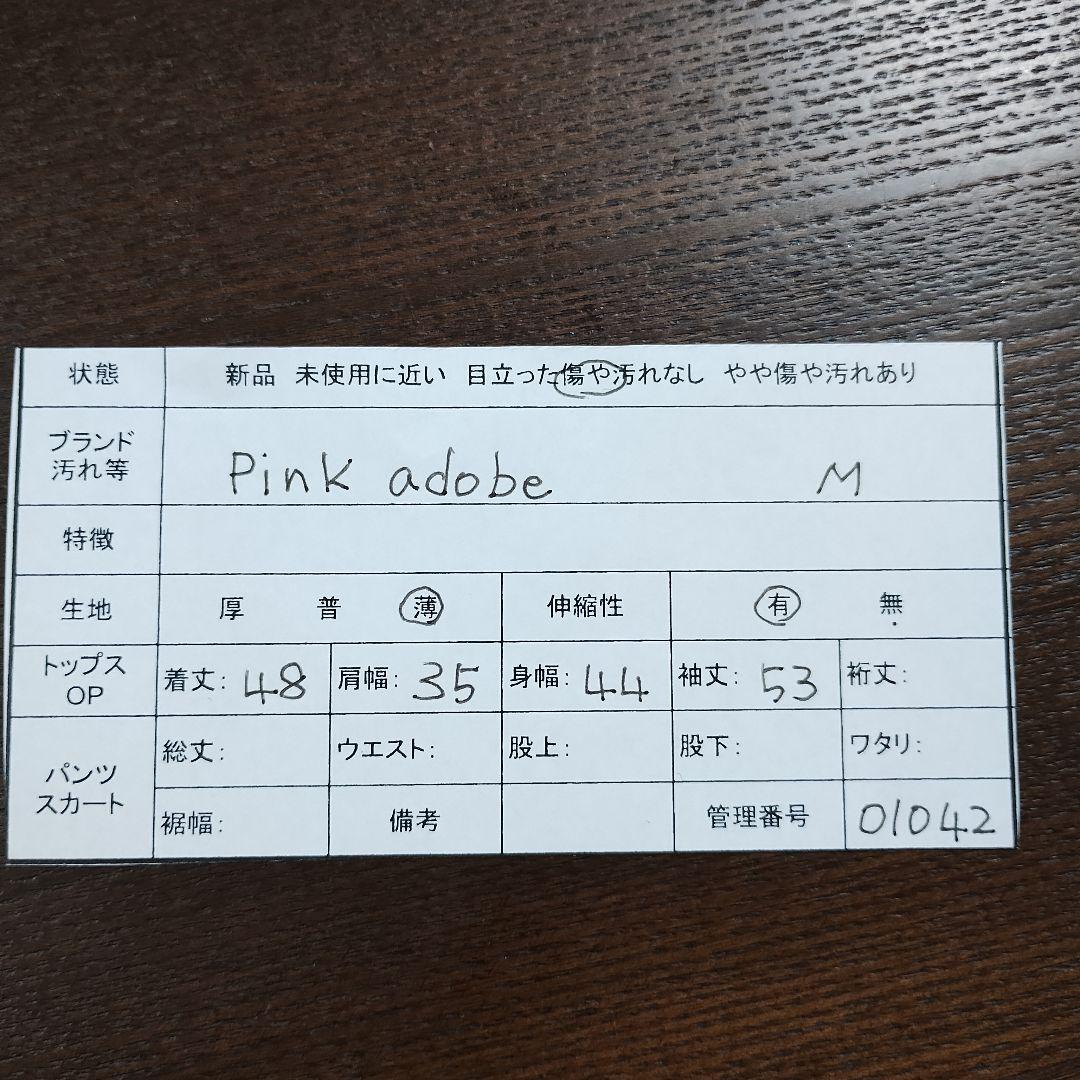 状態 新品 未使用に近い 目立った傷や汚れなし やや傷や汚れあり
ブランド
汚れ等
Pink adobe M
特徴
生地 厚 普 薄 伸縮性 有 無
トップス
OP
着丈: 48 肩幅: 35 身幅: 44 袖丈: 53 裄丈:
パンツ
スカート
総丈: ウエスト: 股上: 股下: ワタリ:
裾幅: 備考 管理番号 01042